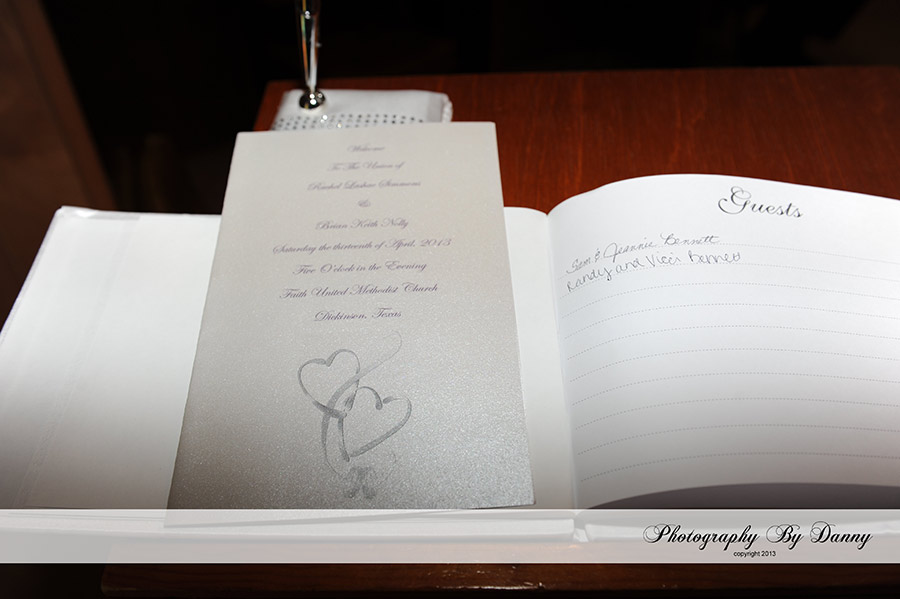 Welcome
To The Union of
Rachel Simmons
&
Brian Keith Nolly
Saturday the thirteenth of April, 2013
Five O'clock in the Evening
Faith United Methodist Church
Dickinson, Texas
Guests
Sam & Jeannie Bennett
Randy and Vicci Bennett
Photography By Danny
copyright 2013